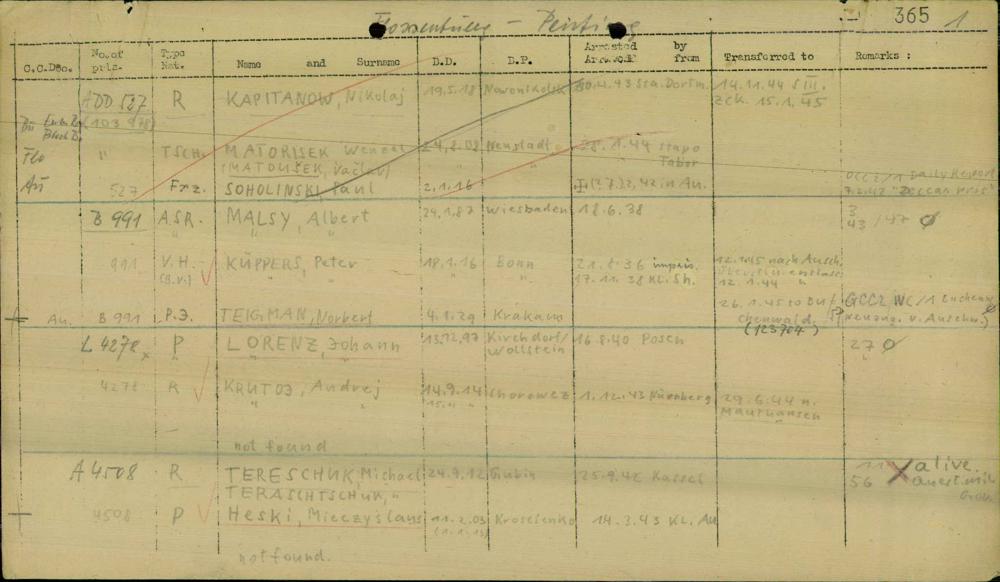 Flossenbürg – Peiting 365 1
C.C.Doc. No. of pris. Type Nat. Name and Surname D.D. D.P. Arrested by Arrived from Transferred to Remarks :
ADD 527 R KAPITANOW, Nikolaj 19.5.18 43 Sta. Dortm. 14.11.44 S III.
(103 978) ZCK. 15.1.45
Flo " TSCH. MATORISEK Wenzel 24.8.08 Neustadt 28.1.44 Stapo
(MATOUSEK, Václav) Tabor
Au 527 Frz. SOHOLINSKI, Paul 2.1.16 42 in Au. OCC2/1 Daily Report
B 991 ASR. MALSY, Albert 24.1.87 Wiesbaden 18.6.38 3/43 /47 Ø
991 V.H. KÜPPERS, Peter 18.1.16 Bonn 21.8.36 impris. 12.1.45 nach Ausch.
(B.V.) " " " 17.11.38 KL. Sh. 12.1.44 "
Au. B 991 P.J. TEIGMAN, Norbert 4.1.29 Krakau 26.1.45 to Buchenwald. GCC2 WC/1 Buchenw.
(123704)
L 4278 P LORENZ, Johann 13.12.97 Kirchdorf/ 16.8.40 Posen 27 Ø
Wollstein
4278 R KRUTOJ, Andrej 14.9.14 1.12.43 Nürnberg 29.6.44 n.
Mauthausen
not found
A 4508 R TERESCHUK, Michael 24.9.12 Gubin 25.9.42 Kassel 11 X alive.
TERASCHTSCHUK, " 56
4508 P HESKI, Mieczyslaus 11.2.03 Kroscienko 14.3.43 KL. Au
not found.